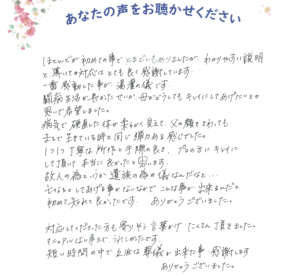 あなたの声をお聴かせください
ほとんどが初めての事でとまどいもありましたが、わかりやすい説明
と導いての対応はとても良く感謝しています。
一番感動した事が湯灌の儀です。
闘病生活が長かったせいか、母がどうしてもキレイにしてあげたいとの
思いで希望しました。
病気で硬直した体が柔らかく見えて 父の顔をさわっても
まるで生きている時と同じ様な感じでした。
1つ1つ丁寧な所作と手際の良さ、プロの方にキレイに
して頂けて本当に良かったと思います。
故人の為というか遺族の為の儀なんだなと…
亡くなるとしてあげる事がないなかでこんな事が出来るのだと
初めて知れて良かったです。ありがとうございました。
対応してくださった方も寄りそう言葉がけたくさん頂きました。
マニュアルなしの事で、うれしかったです。
短い時間の中で立派な葬儀が出来た事 感謝します
ありがとうございました。